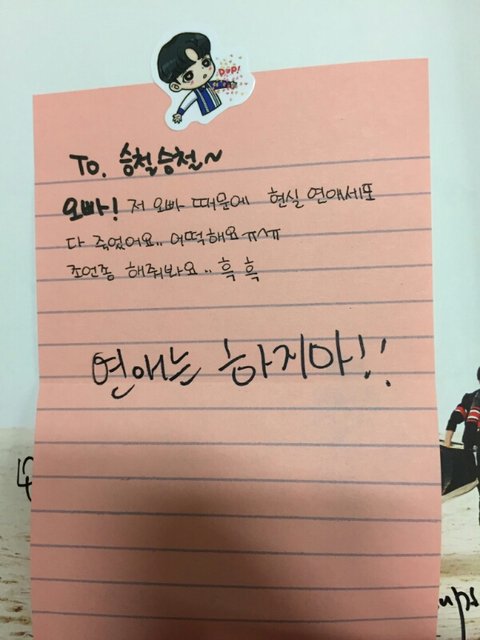 POP!
To. 승철승철~
오빠! 저 오빠 때문에 현실 연애세포
다 죽었어요.. 어떡해요ㅠㅅㅠ
조언좀 해줘봐요.. 흑 흑
연애는 하지마!!
ups